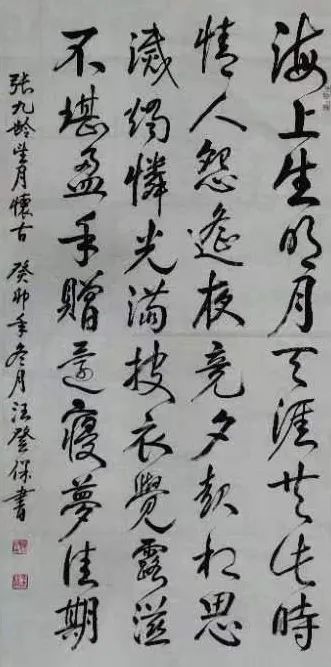 海上生明月天涯共此時
情人怨遙夜竟夕起相思
滅燭憐光滿披衣覺露滋
不堪盈手贈還寢夢佳期
张九齡望月懷古 癸卯年冬月汪登保書